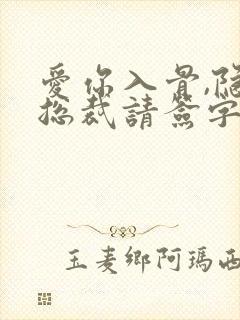 愛你入骨,隐
总裁請簽字
玉麦鄉阿瑪西